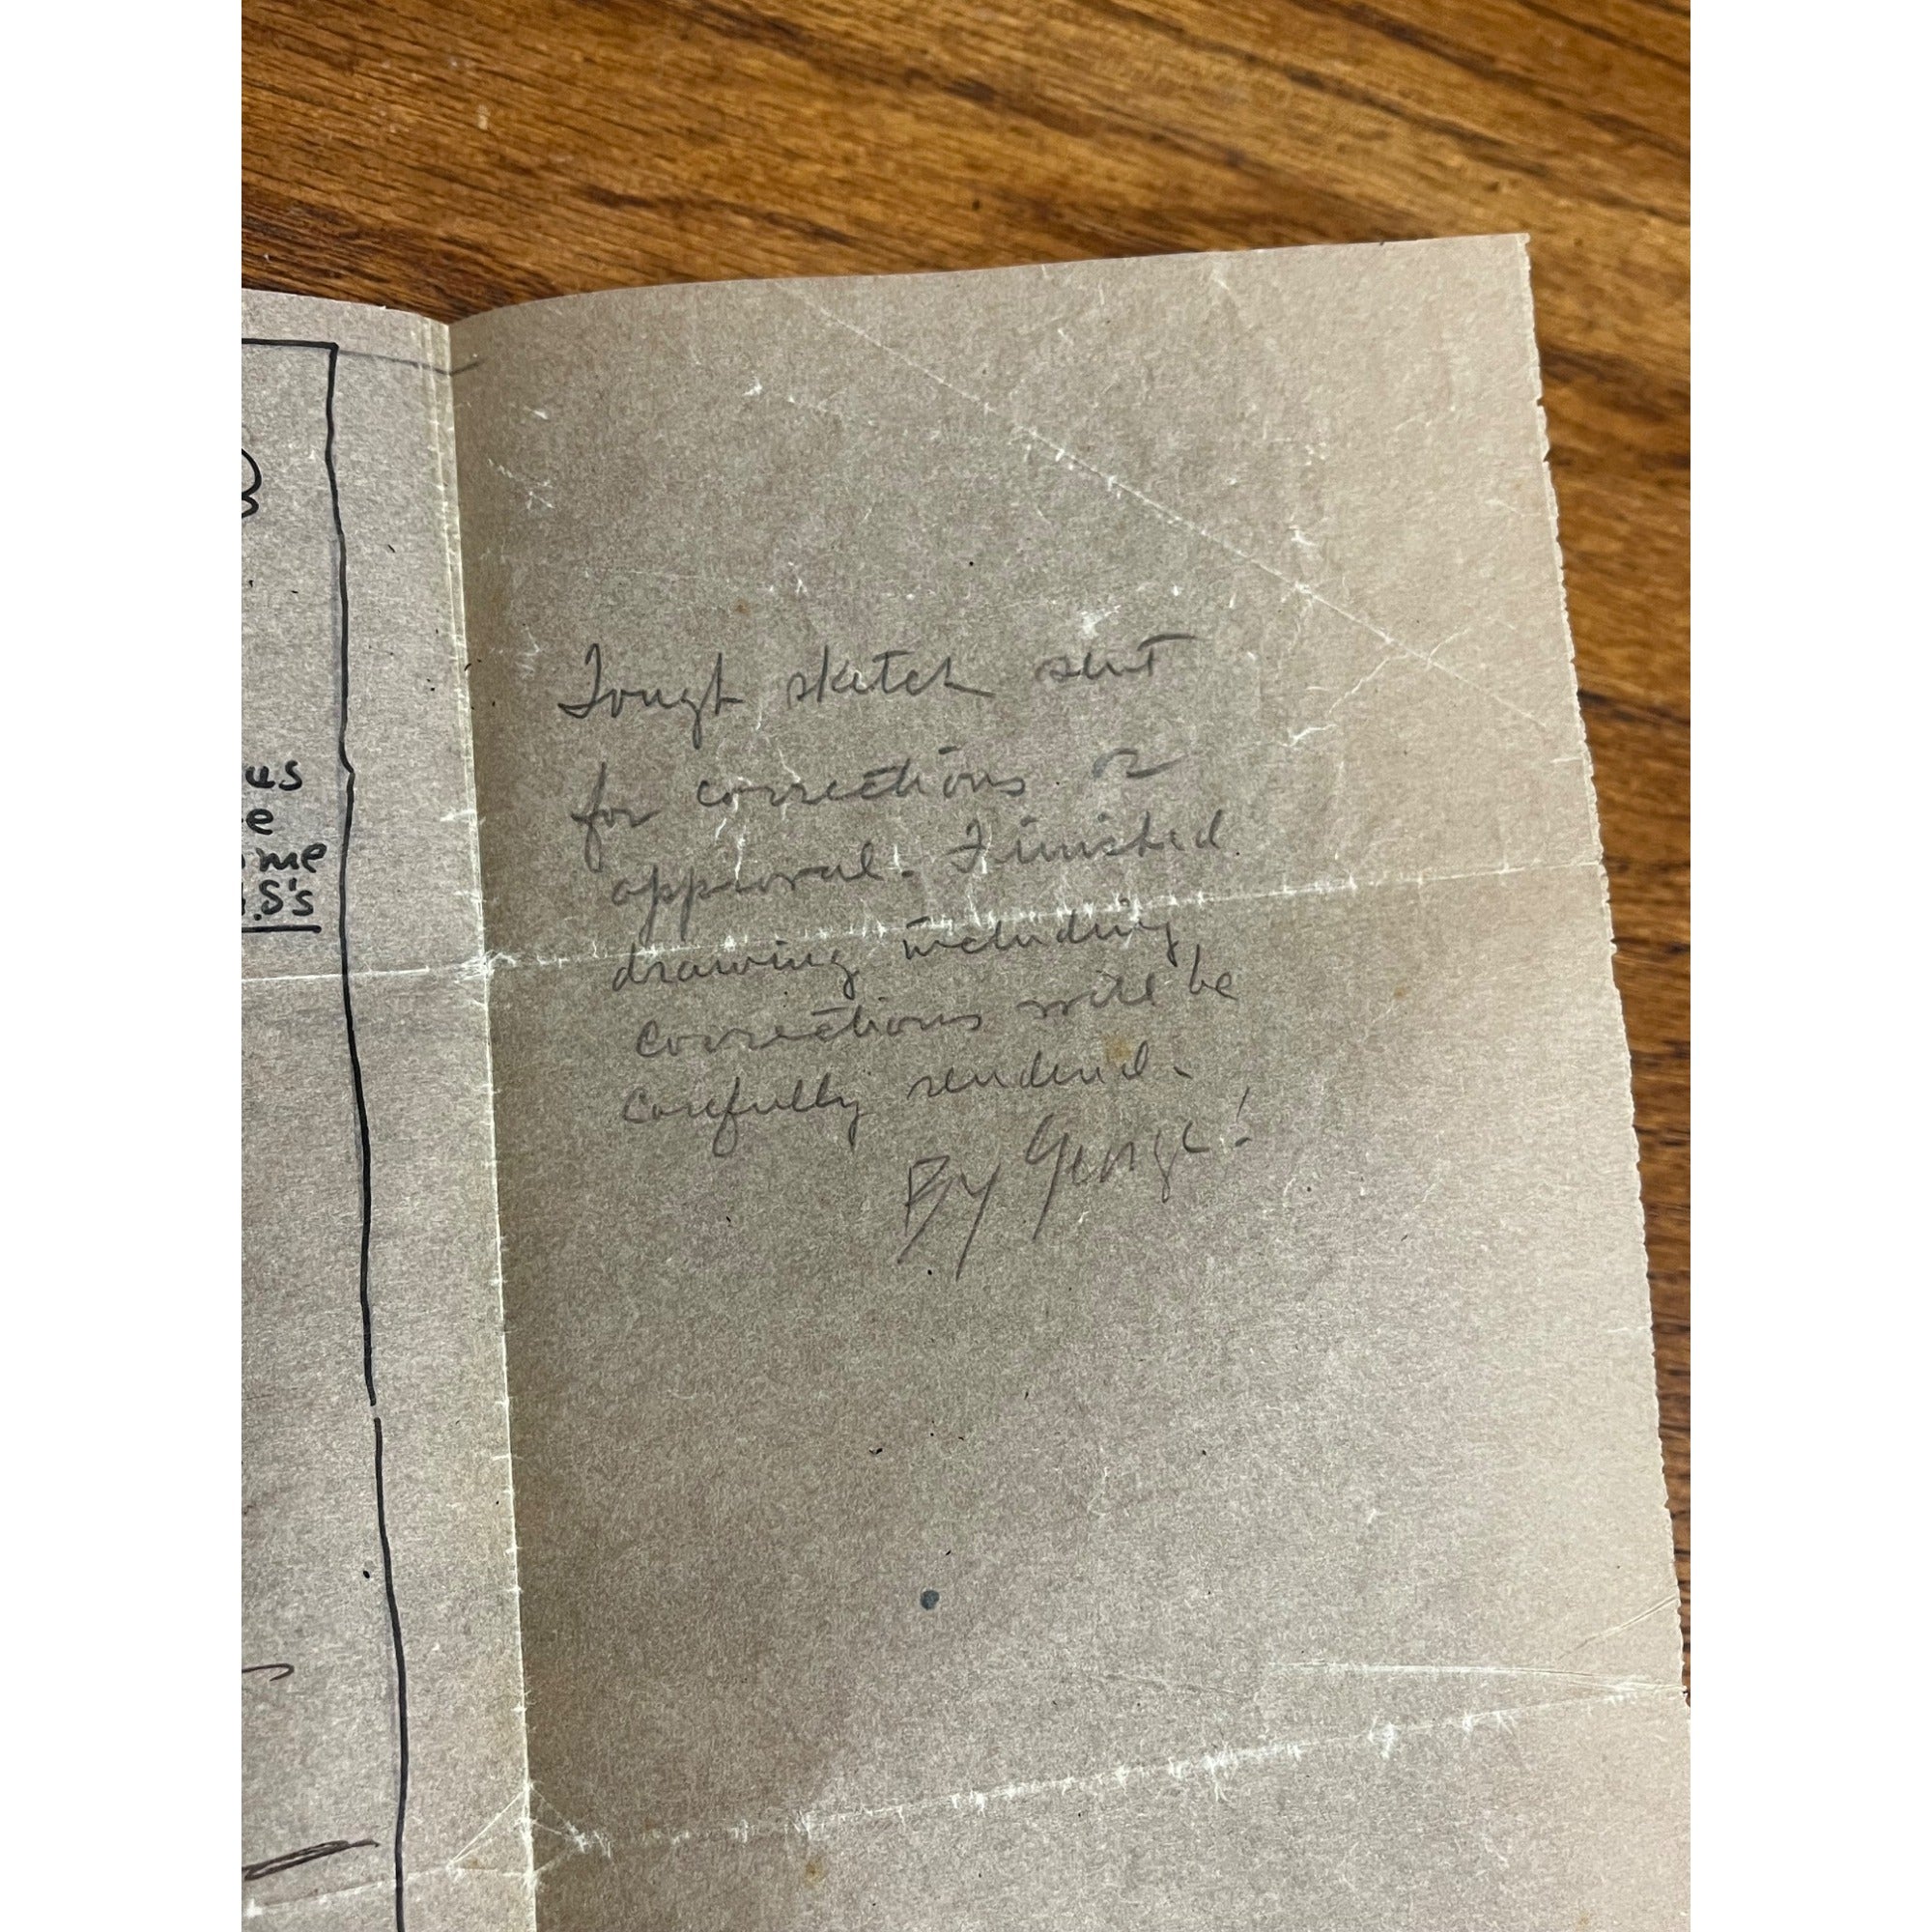 us
e
me
.S's
Tough sketch sent
for corrections or
approval. Finished
drawing including
corrections will be
carefully rendered.
By George!